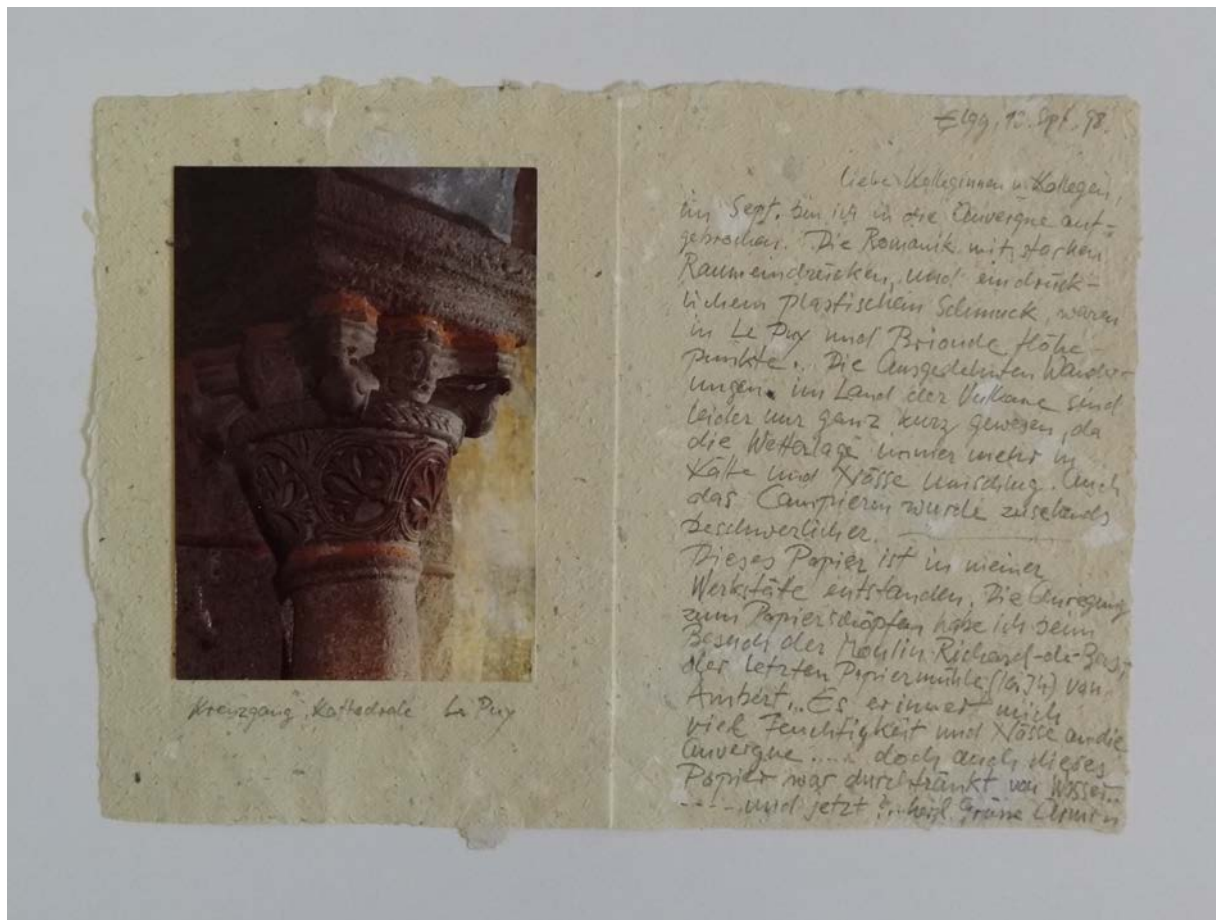 Kreuzgang, Kathedrale Le Puy
Elgg, Sept. 98.
Liebe Kolleginnen u. Kollegen,
im Sept. bin ich in die Auvergne auf-
gebrochen. Die Romanik mit starken
Raumeindrücken, und eindrück-
lichem plastischem Schmuck, waren
in Le Puy und Brioude Höhe-
punkte.. Die Ausgedehnten Wander-
ungen im Land der Vulkane sind
leider nur ganz kurz gewesen, da
die Wetterlage immer mehr in
Kälte und Nässe umschlug. Auch
das Campieren wurde zusehends
beschwerlicher.
Dieses Papier ist in meiner
Werkstäte entstanden. Die Anregung
zum Papierschöpfen habe ich beim
Besuch der Moulin Richard-de-Bas,
der letzten Papiermühle von
Ambert... Es erinnert mich
viel Feuchtigkeit und Nässe an die
Auvergne..... doch auch dieses
Papier war durchtränkt von Wasser..
..... und jetzt ?.. herzl. Grüsse Armin